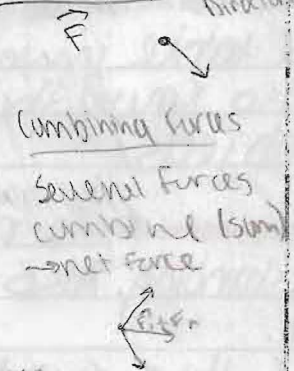 F
Combining Forces
Several Forces
combine (sum)
→ net force